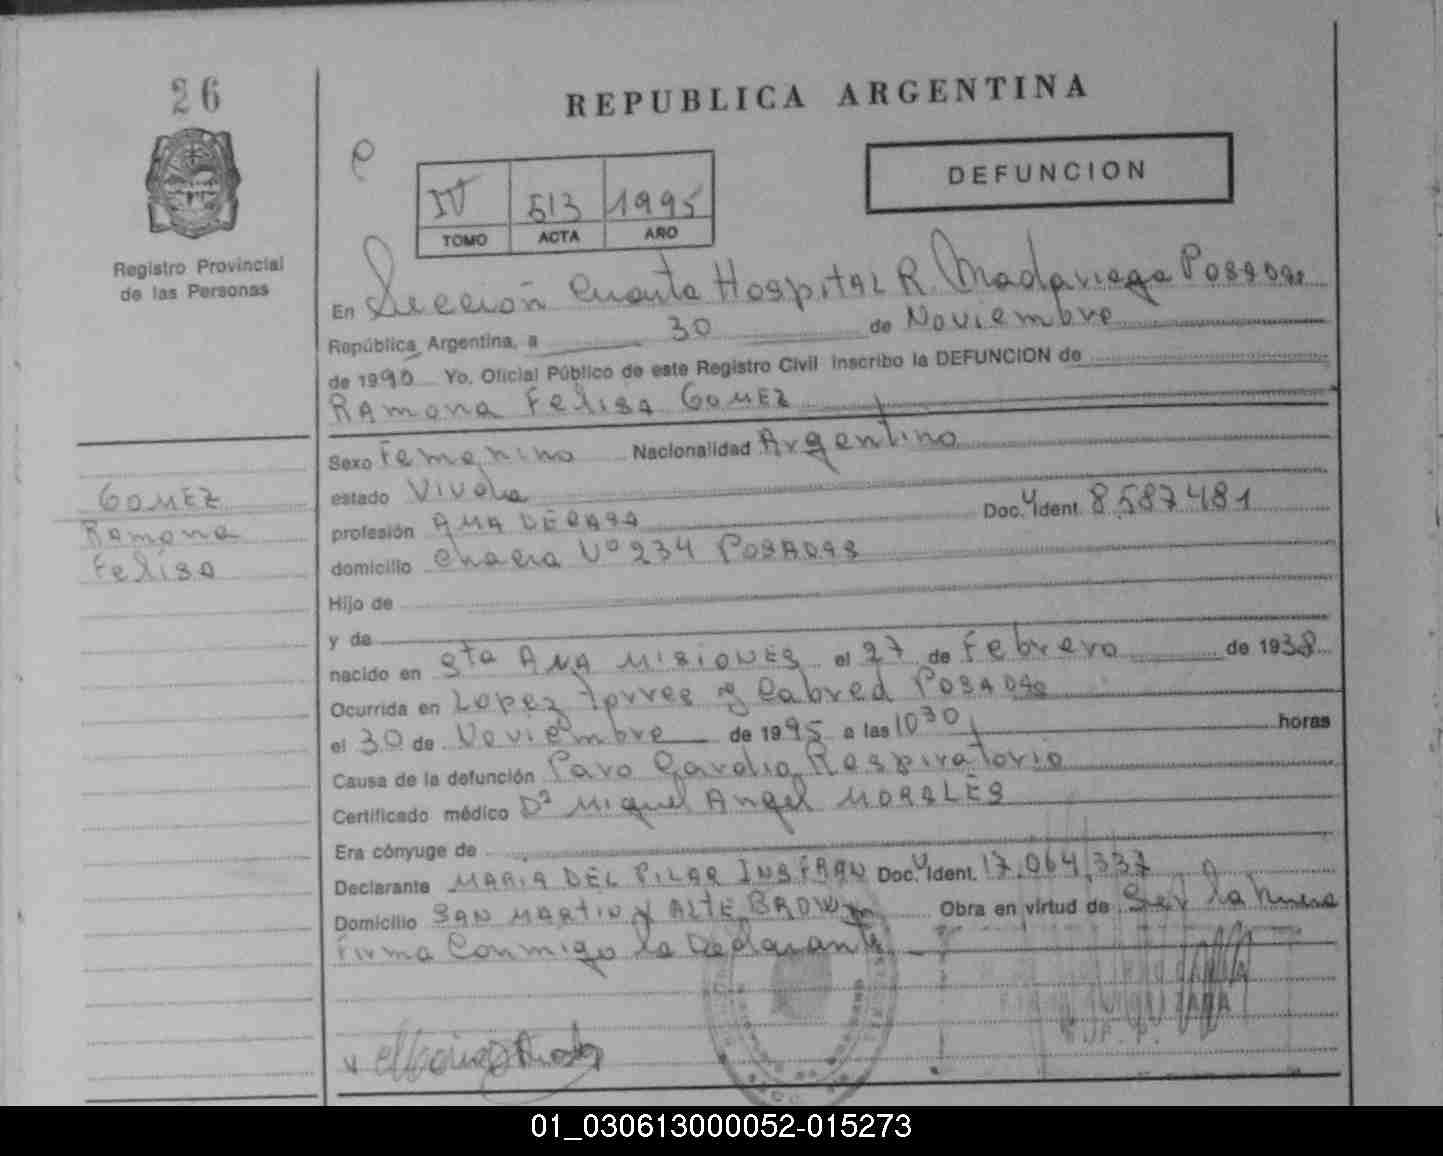 26
REPUBLICA ARGENTINA
DEFUNCION
IV 513 1995
TOMO ACTA AÑO
Registro Provincial
de las Personas
En Sección Cuarta Hospital R. Madariaga Posadas
República Argentina, a 30 de Noviembre
de 1990 Yo, Oficial Público de este Registro Civil inscribo la DEFUNCION de
Ramona Felisa Gomez
Sexo Femenino Nacionalidad Argentino
estado Viuda
GOMEZ
Ramona
Felisa
profesión AMA DE CASA Doc. Ident. 8.587.481
domicilio chacra Nº 234 POSADAS
Hijo de
y de
nacido en Sta ANA MISIONES el 27 de Febrero de 1938
Ocurrida en Lopez Torres y Cabred POSADAS
el 30 de Noviembre de 1995 a las 1030 horas
Causa de la defunción Paro Cardio Respiratorio
Certificado médico Dr Miguel Angel MORALES
Era cónyuge de
Declarante MARIA DEL PILAR INSFRAN Doc. Ident. 17.064.337
Domicilio SAN MARTIN y ALTE BROWN Obra en virtud de Ser la Nuera
Firma Conmigo la Declarante
01_030613000052-015273